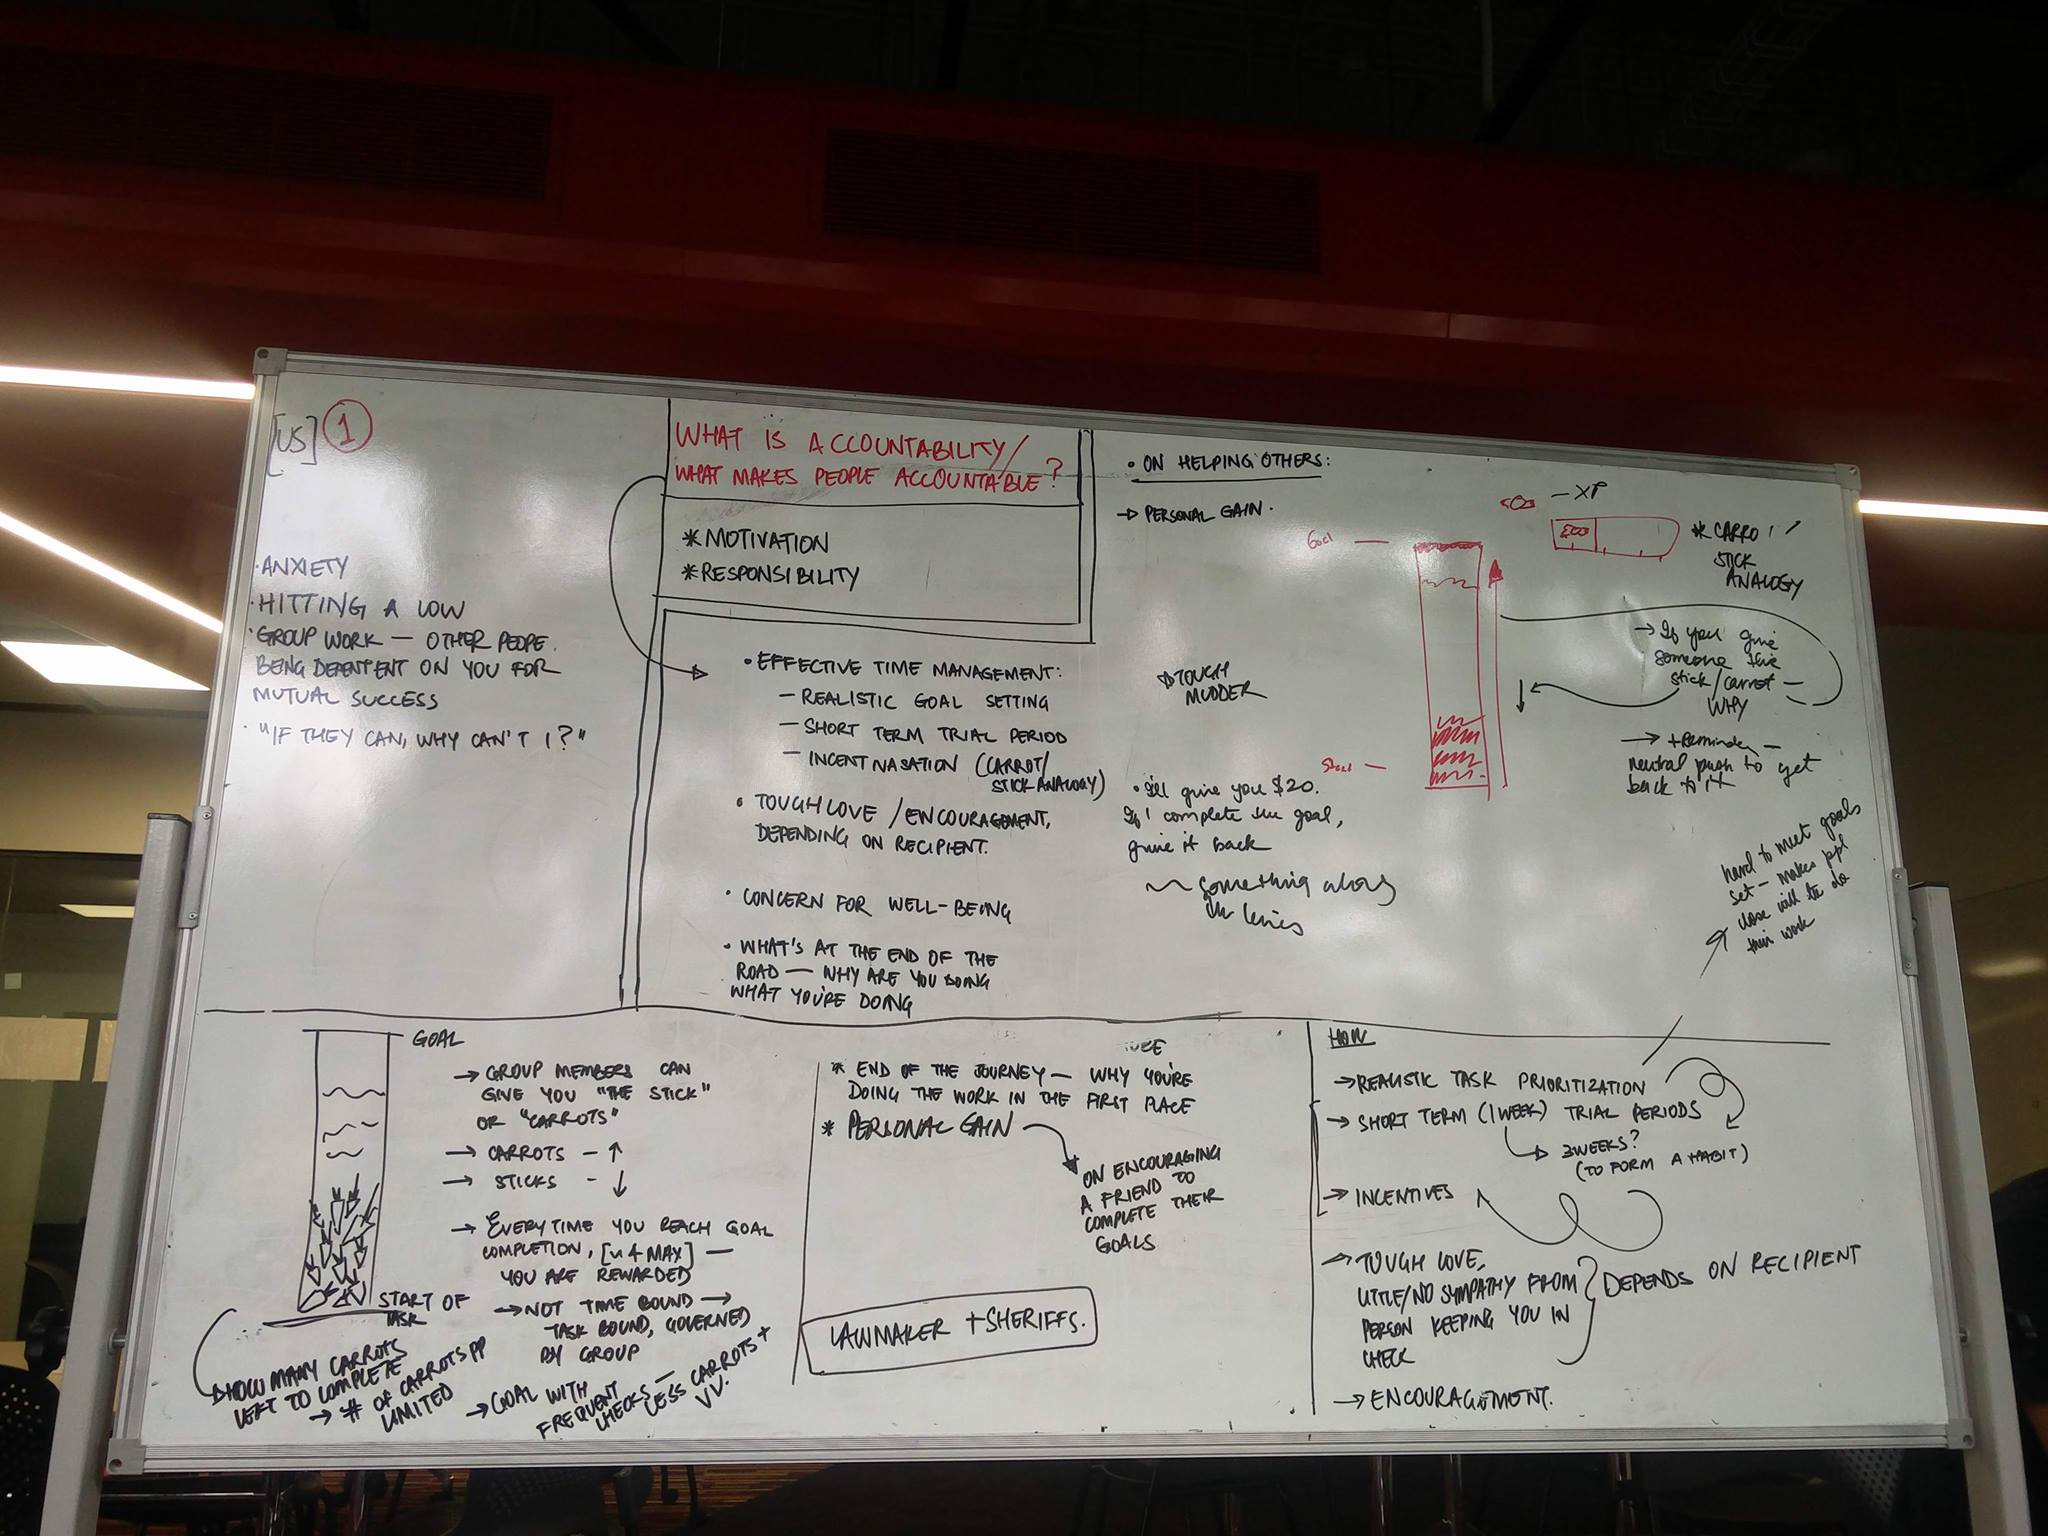 [US] 1
· ANXIETY
· HITTING A LOW
· GROUP WORK — OTHER PEOPE
BEING DEPENTENT ON YOU FOR
MUTUAL SUCCESS
· "IF THEY CAN, WHY CAN'T I?"
WHAT IS ACCOUNTABILITY/
WHAT MAKES PEOPLE ACCOUNTABLE?
* MOTIVATION
* RESPONSIBILITY
· EFFECTIVE TIME MANAGEMENT:
— REALISTIC GOAL SETTING
— SHORT TERM TRIAL PERIOD
— INCENTNASATION (CARROT/
STICK ANALOGY)
· TOUGH LOVE / ENCOURAGEMENT,
DEPENDING ON RECIPIENT.
· CONCERN FOR WELL-BEING
· WHAT'S AT THE END OF THE
ROAD — WHY ARE YOU DOING
WHAT YOU'RE DOING
· ON HELPING OTHERS:
→ PERSONAL GAIN.
→ TOUGH
MUDDER
· I'll give you $20.
If I complete the goal,
give it back
~ something along
the lines
Goal —
Start —
— XP
* CARRO /
STICK
ANALOGY
→ If you give
someone the
stick/carrot —
WHY
→ + Reminder —
neutral push to get
back to it
hard to meet goals
set — makes ppl
close will to do
their work
GOAL
START OF
TASK
HOW MANY CARROTS
LEFT TO COMPLETE
→ # OF CARROTS PP
LIMITED
→ GROUP MEMBERS CAN
GIVE YOU "THE STICK"
OR "CARROTS"
→ CARROTS — ↑
→ STICKS — ↓
→ EVERYTIME YOU REACH GOAL
COMPLETION, [ MAX] —
YOU ARE REWARDED
→ NOT TIME BOUND →
TASK BOUND, GOVERNED
BY GROUP
→ GOAL WITH
FREQUENT
CHECKS —
LESS CARROTS +
VV.
* END OF THE JOURNEY — WHY YOU'RE
DOING THE WORK IN THE FIRST PLACE
* PERSONAL GAIN
ON ENCOURAGING
A FRIEND TO
COMPLETE THEIR
GOALS
LAWMAKER + SHERIFFS.
HOW
→ REALISTIC TASK PRIORITIZATION
→ SHORT TERM (1 WEEK) TRIAL PERIODS
→ 3 WEEKS?
(TO FORM A HABIT)
→ INCENTIVES
→ TOUGH LOVE,
LITTLE/NO SYMPATHY FROM
PERSON KEEPING YOU IN
CHECK
DEPENDS ON RECIPIENT
→ ENCOURAGEMENT.